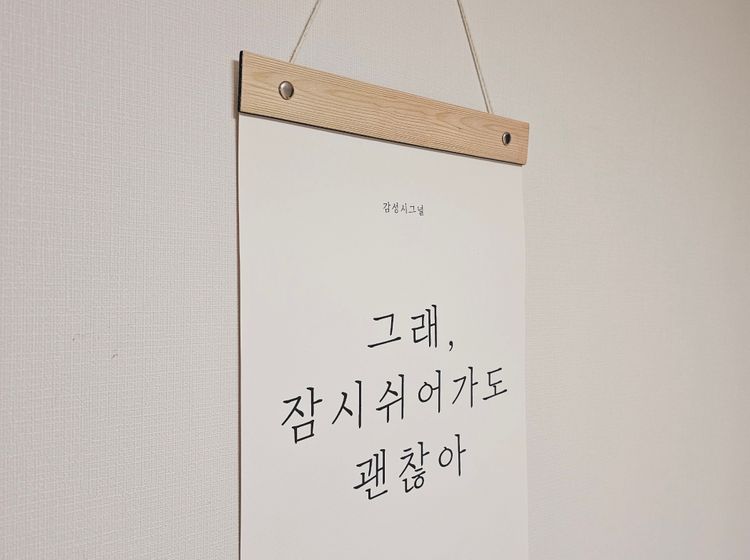 감성시그널
그래,
잠시쉬어가도
괜찮아